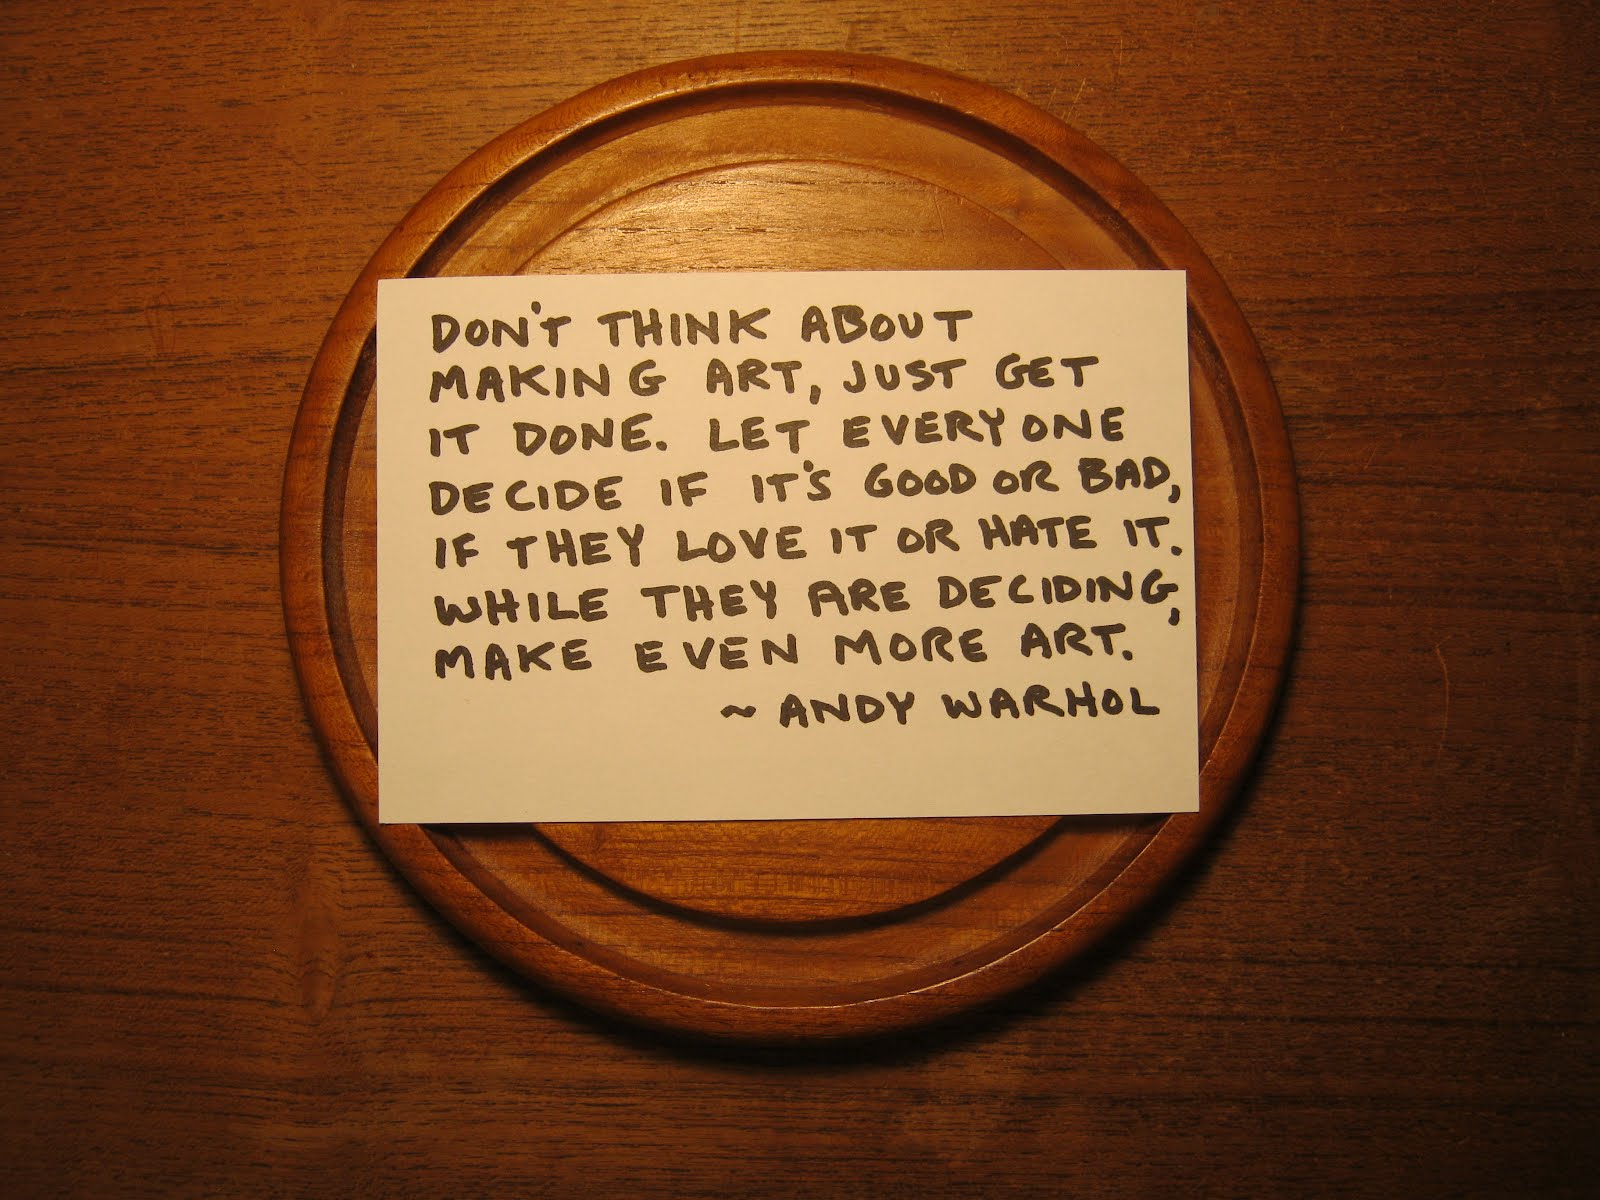 DON'T THINK ABOUT
MAKING ART, JUST GET
IT DONE. LET EVERYONE
DECIDE IF IT'S GOOD OR BAD,
IF THEY LOVE IT OR HATE IT.
WHILE THEY ARE DECIDING,
MAKE EVEN MORE ART.
~ ANDY WARHOL